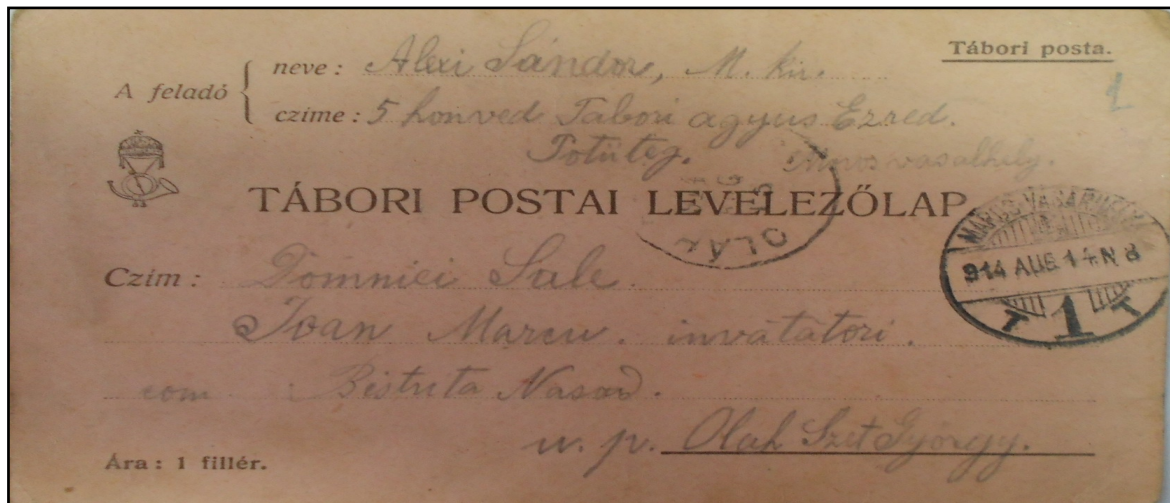 Tábori posta.
1
A feladó
neve: Alexi Sándor, M. kir.
czime: 5 honved Tabori agyus Ezred.
Marosvasalhely.
TÁBORI POSTAI LEVELEZŐLAP
OLÁH
MAROS-VÁSÁRHELY
914 AUG 14 N 8
T 1 T
Czim: Domniei Sale
Ioan Marcu. invatatori.
com Bistrita Nasod.
u. p. Olah Szt György.
Ára: 1 fillér.